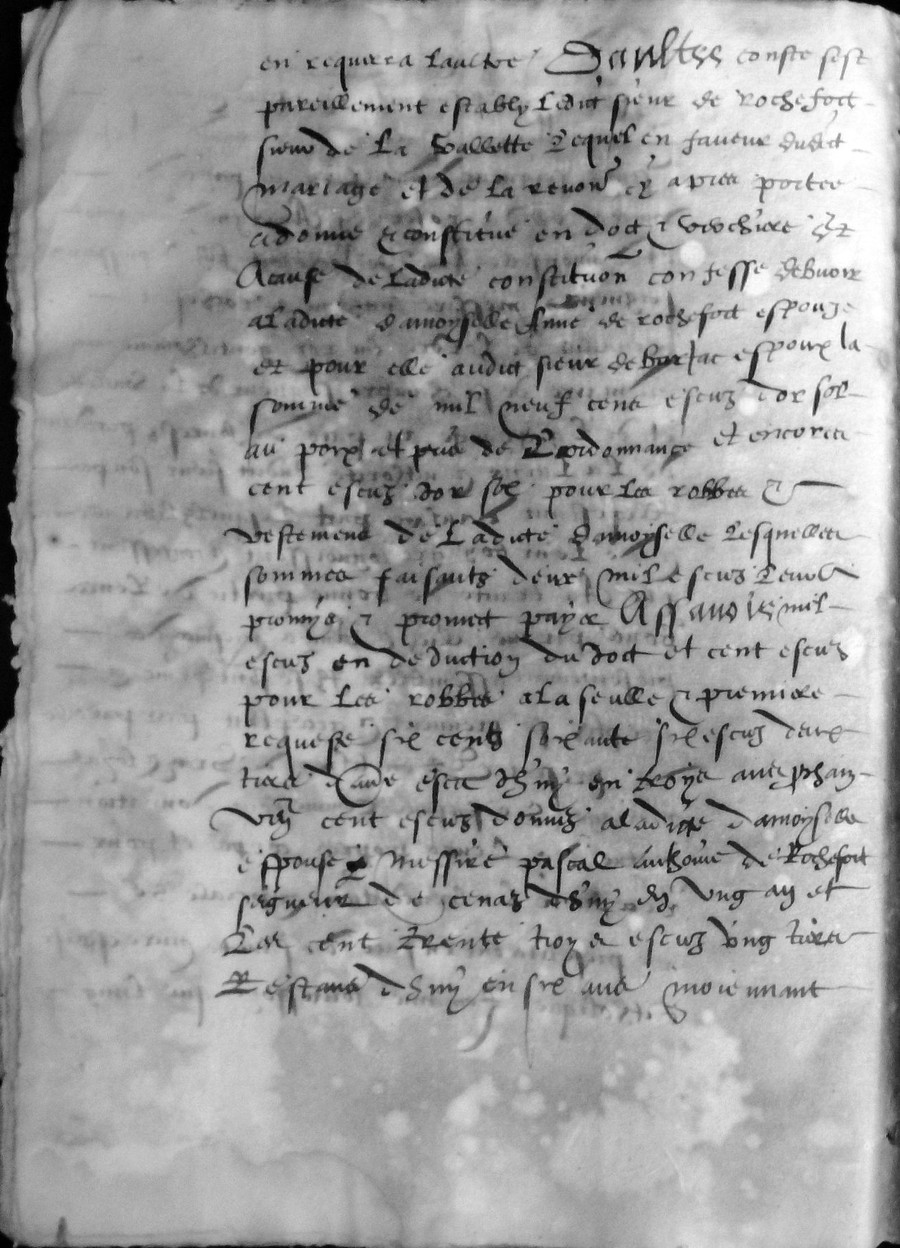 en requerra laultre Daultre couste sest
pareillement estably ledict sieur de rochefort
sieur de La Vallette Lequel en faveur dudict
mariage et de la cy apres portee
a donne & constitue en dot & et
A cause de ladicte constitution confesse debvoir
a ladicte damoyselle Anne de rochefort espouze
et pour elle audict sieur de Barjac espoux la
somme de mil neuf cens escuz dor sol
au poix et pris de Lordonnance et encores
cent escuz dor sol pour les robbes &
vestemens de Ladicte damoyselle Lesquelles
sommes faisants deux mil escuz
promys & promect payer Assavoir mil
escuz en deduction du dot et cent escuz
pour les robbes a la seulle & premiere
requeste six cents soixante six escuz deux
tiers dhuy en troys ans prochain
cent escuz donnez a ladicte damoyselle
espouse messire pascal anthoine de Rochefort
seigneur de cenas dhuy en ung an et
Les cent trente troys escuz ung tiers
Restans dhuy en six ans moiennant